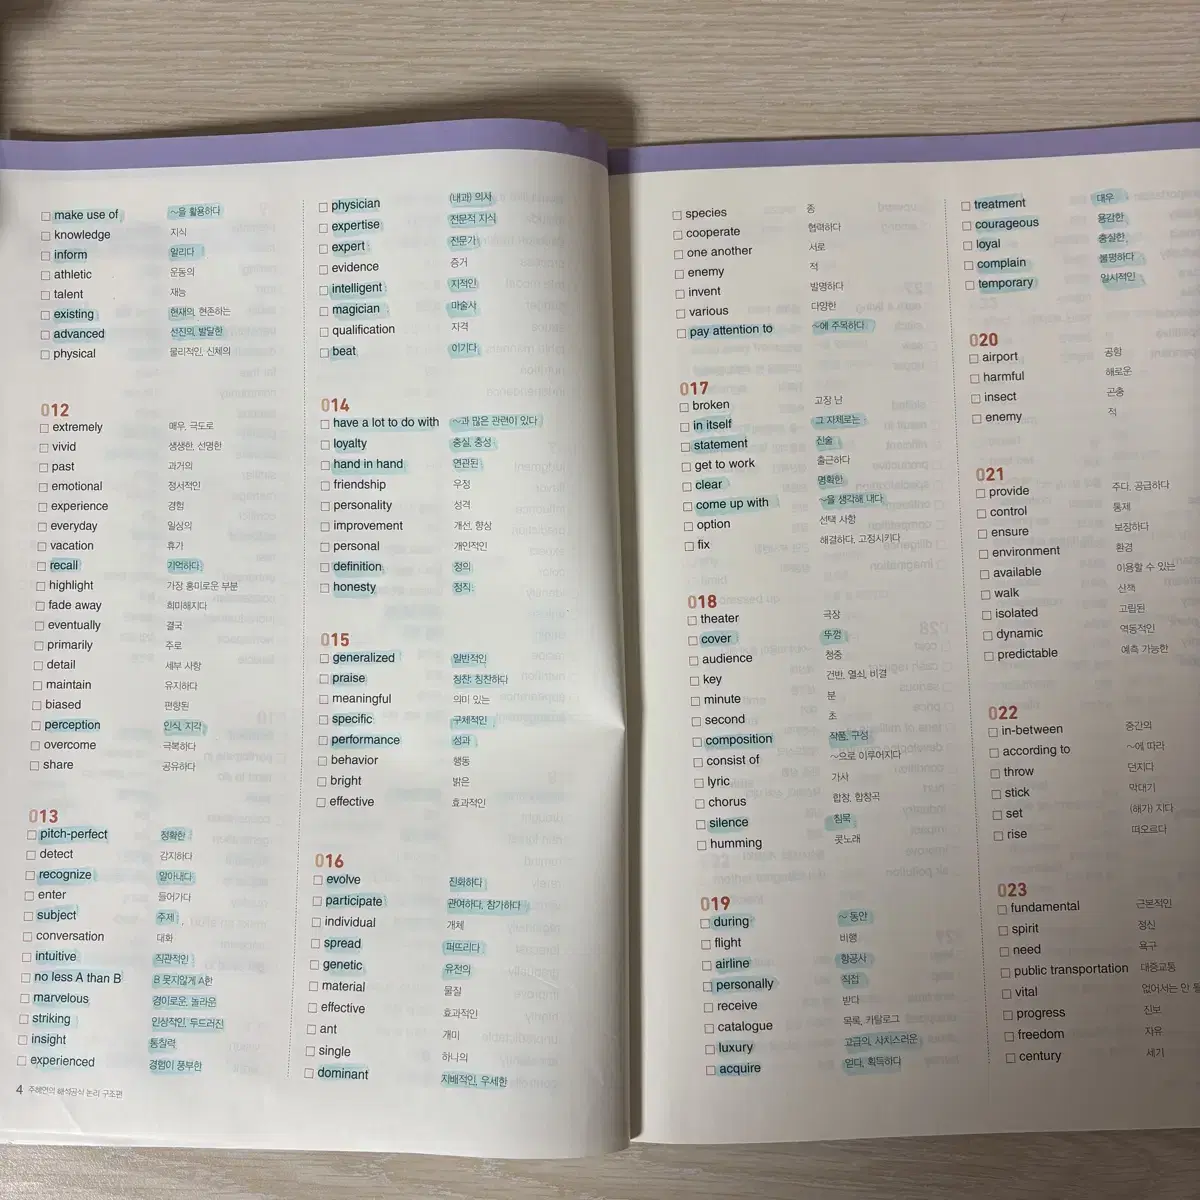 make use of ~을 활용하다
knowledge 지식
inform 알리다
athletic 운동의
talent 재능
existing 현재의, 현존하는
advanced 선진의, 발달한
physical 물리적인, 신체의
012
extremely 매우, 극도로
vivid 생생한, 선명한
past 과거의
emotional 정서적인
experience 경험
everyday 일상의
vacation 휴가
recall 기억하다
highlight 가장 흥미로운 부분
fade away 희미해지다
eventually 결국
primarily 주로
detail 세부 사항
maintain 유지하다
biased 편향된
perception 인식, 지각
overcome 극복하다
share 공유하다
013
pitch-perfect 정확한
detect 감지하다
recognize 알아내다
enter 들어가다
subject 주제
conversation 대화
intuitive 직관적인
no less A than B B 못지않게 A한
marvelous 경이로운, 놀라운
striking 인상적인, 두드러진
insight 통찰력
experienced 경험이 풍부한
4 주혜연의 해석공식 논리 구조편
physician (내과) 의사
expertise 전문적 지식
expert 전문가
evidence 증거
intelligent 지적인
magician 마술사
qualification 자격
beat 이기다
014
have a lot to do with ~과 많은 관련이 있다
loyalty 충실, 충성
hand in hand 연관된
friendship 우정
personality 성격
improvement 개선, 향상
personal 개인적인
definition 정의
honesty 정직
015
generalized 일반적인
praise 칭찬; 칭찬하다
meaningful 의미 있는
specific 구체적인
performance 성과
behavior 행동
bright 밝은
effective 효과적인
016
evolve 진화하다
participate 관여하다, 참가하다
individual 개체
spread 퍼뜨리다
genetic 유전의
material 물질
effective 효과적인
ant 개미
single 하나의
dominant 지배적인, 우세한
species 종
cooperate 협력하다
one another 서로
enemy 적
invent 발명하다
various 다양한
pay attention to ~에 주목하다
017
broken 고장 난
in itself 그 자체로는
statement 진술
get to work 출근하다
clear 명확한
come up with ~을 생각해 내다
option 선택 사항
fix 해결하다, 고정시키다
018
theater 극장
cover 뚜껑
audience 청중
key 건반, 열쇠, 비결
minute 분
second 초
composition 작품, 구성
consist of ~으로 이루어지다
lyric 가사
chorus 합창, 합창곡
silence 침묵
humming 콧노래
019
during ~ 동안
flight 비행
airline 항공사
personally 직접
receive 받다
catalogue 목록, 카탈로그
luxury 고급의, 사치스러운
acquire 얻다, 획득하다
treatment 대우
courageous 용감한
loyal 충실한
complain 불평하다
temporary 일시적인
020
airport 공항
harmful 해로운
insect 곤충
enemy 적
021
provide 주다, 공급하다
control 통제
ensure 보장하다
environment 환경
available 이용할 수 있는
walk 산책
isolated 고립된
dynamic 역동적인
predictable 예측 가능한
022
in-between 중간의
according to ~에 따라
throw 던지다
stick 막대기
set (해가) 지다
rise 떠오르다
023
fundamental 근본적인
spirit 정신
need 욕구
public transportation 대중교통
vital 없어서는 안 될
progress 진보
freedom 자유
century 세기